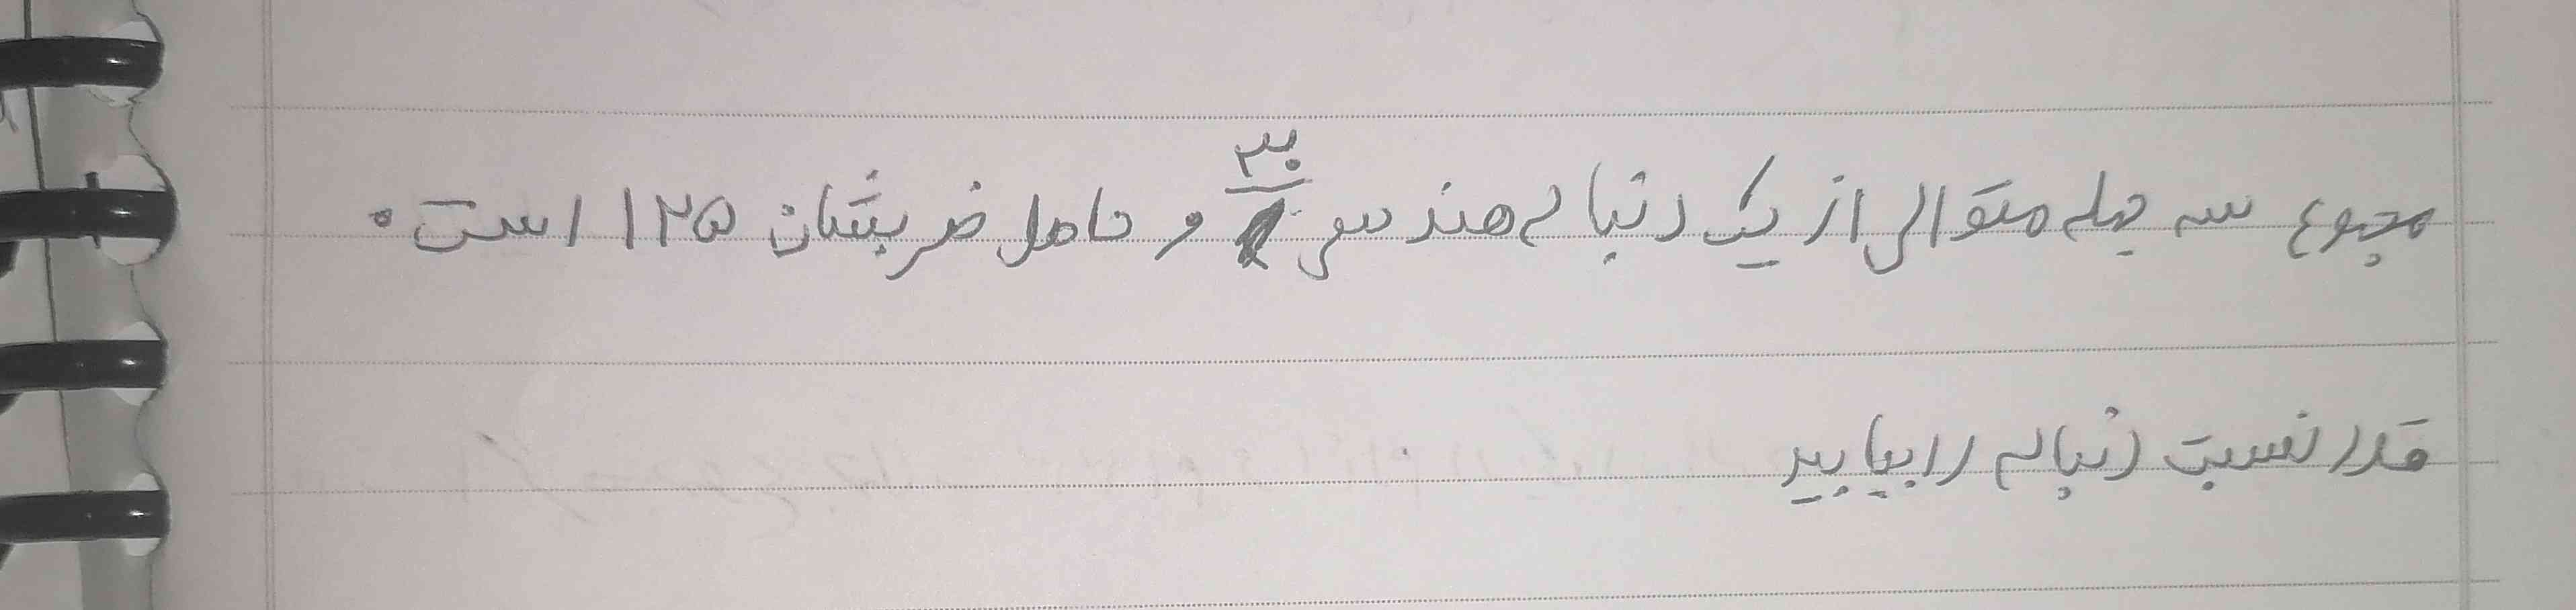 مجموع سه جمله متوالی از یک دنباله هندسی و حاصل ضربشان ۱۲۵ است.
قدر نسبت دنباله را بیابید